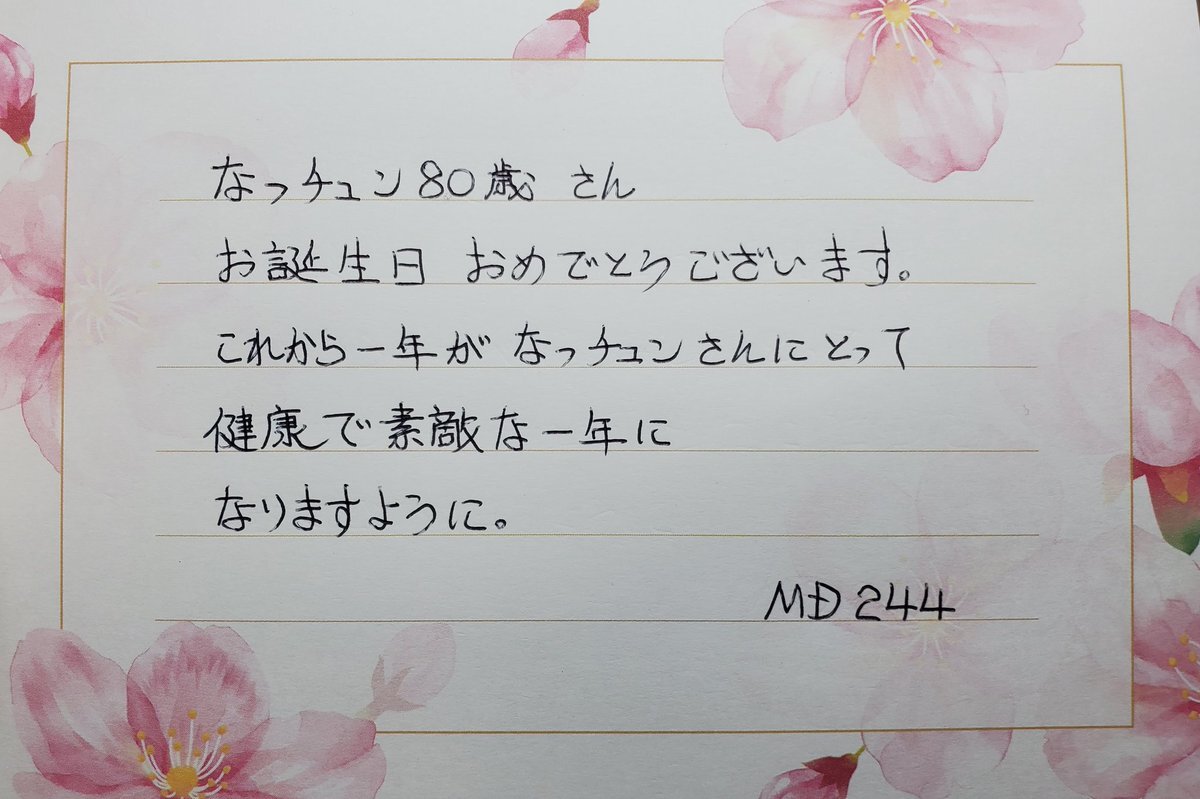 なっチュン80歳 さん
お誕生日 おめでとうございます。
これから一年が なっチュンさんにとって
健康で素敵な一年に
なりますように。
MD244